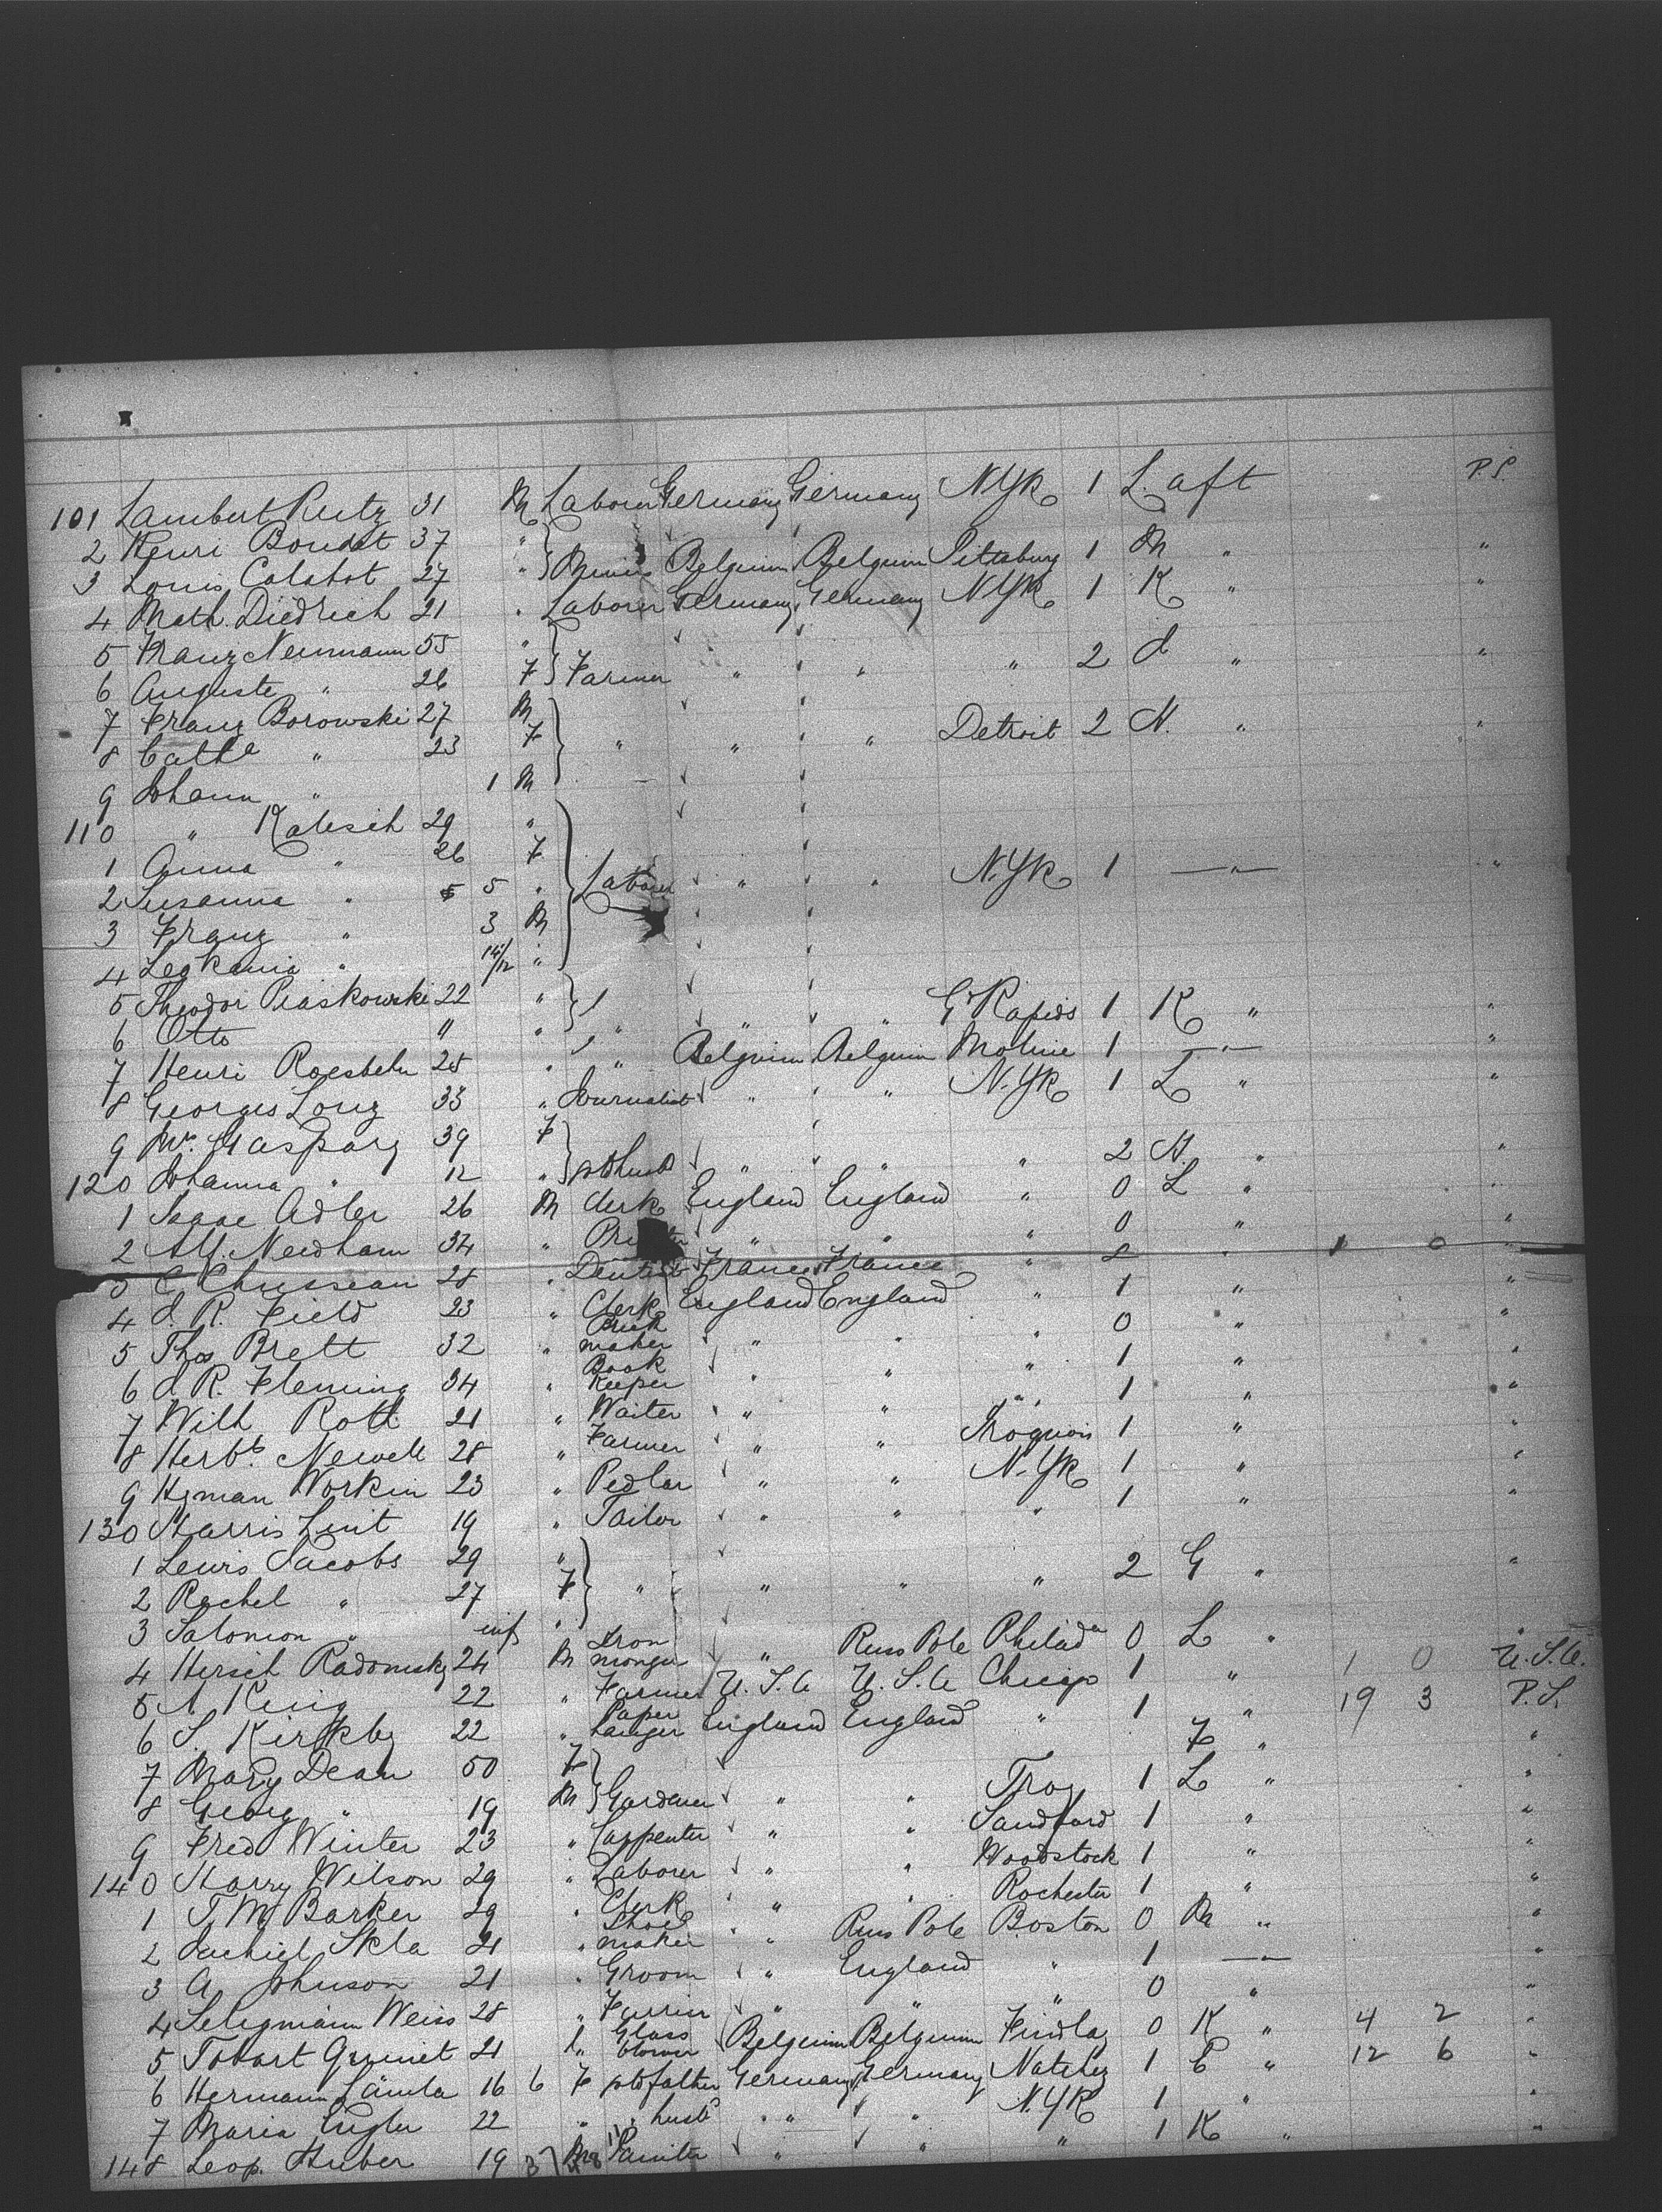 P.S.
101 Lambert Reitz 31 M Laborer Germany Germany N.Yk 1 L. aft
2 Henri Boudot 37 "
3 Louis Calabot 27 " Miner Belgium Belgium Pittsburg 1 M " "
4 Math. Diedrich 21 " Laborer Germany Germany N.Yk 1 K " "
5 Franz Neumann 55 "
6 Auguste " 26 F Farmer " " " 2 J " "
7 Franz Borowski 27 M
8 Cathe " 23 F " " " Detroit 2 N. " "
9 Johann " 1 M
110 " Kalisch 29 "
1 Anna " 26 F
2 Susanna " 5 " Laborer " " N.Yk 1 — " — "
3 Franz " 3 M
4 " 
5 Theodor Piaskowski 22 "
6 Otto " " " " " Gd Rapids 1 K " "
7 Henri 28 " " Belgium Belgium Moline 1 — " — "
8 Georges Long 33 " Journalist " " N.Yk 1 L " "
9 Mrs. Gaspary 39 F
120 Johanna " 12 " to husb " " " 2 H. " "
1 Isaac Adler 26 M Clerk England England " 0 L " "
2 Alf. Needham 34 " " " " 0 " "
3 C. 28 " Dentist France France " 8 " 1 0 "
4 J. R. Field 23 " Clerk England England " 1 " "
5 Thos Brett 32 " Brick maker " " " 0 " "
6 J. R. Fleming 34 " Book Keeper " " " 1 " "
7 Wilh Roth 21 " Waiter " " " 1 " "
8 Herbt. Newell 28 " Farmer " " Iroquois 1 " "
9 Hyman Workin 23 " Pedlar " " N.Yk 1 " "
130 Harris Lint 19 " Tailor " " " 1 " "
1 Lewis Jacobs 29 "
2 Rachel " 27 F " " " " 2 G " "
3 Salomon " inf "
4 Hersch Radomsky 24 M Iron monger " Russ Pole Philada 0 L " "
5 A. King 22 " Farmer U.S.A U.S.A Chicago 1 " 1 0 U.S.A.
6 S. Kirkby 22 " Paper hanger England England " 1 " 19 3 P.S.
7 Mary Dean 50 F F " "
8 Georg " 19 M Gardener " " Troy 1 L " "
9 Fred Winter 23 " Carpenter " " Sandford 1 " "
140 Harry Wilson 29 " Laborer " " Woodstock 1 " "
1 T. M. Barker 29 " Clerk " " Rochester 1 " "
2 Jachiel Skla 21 " Shoe maker " Russ Pole Boston 0 M " "
3 A. Johnson 21 " Groom " England " 1 — " — "
4 Seligmann Weiss 28 " Furrier " " " 0 " "
5 Tobart 21 " Glass blower Belgium Belgium Findlay 0 K " 4 2 "
6 Hermann 16 6 F to father Germany Germany Natchez 1 C " 12 6 "
7 Maria Engler 22 " " husb " " N.Yk 1 " "
148 Leop. Huber 19 M Painter " " " 1 K " "